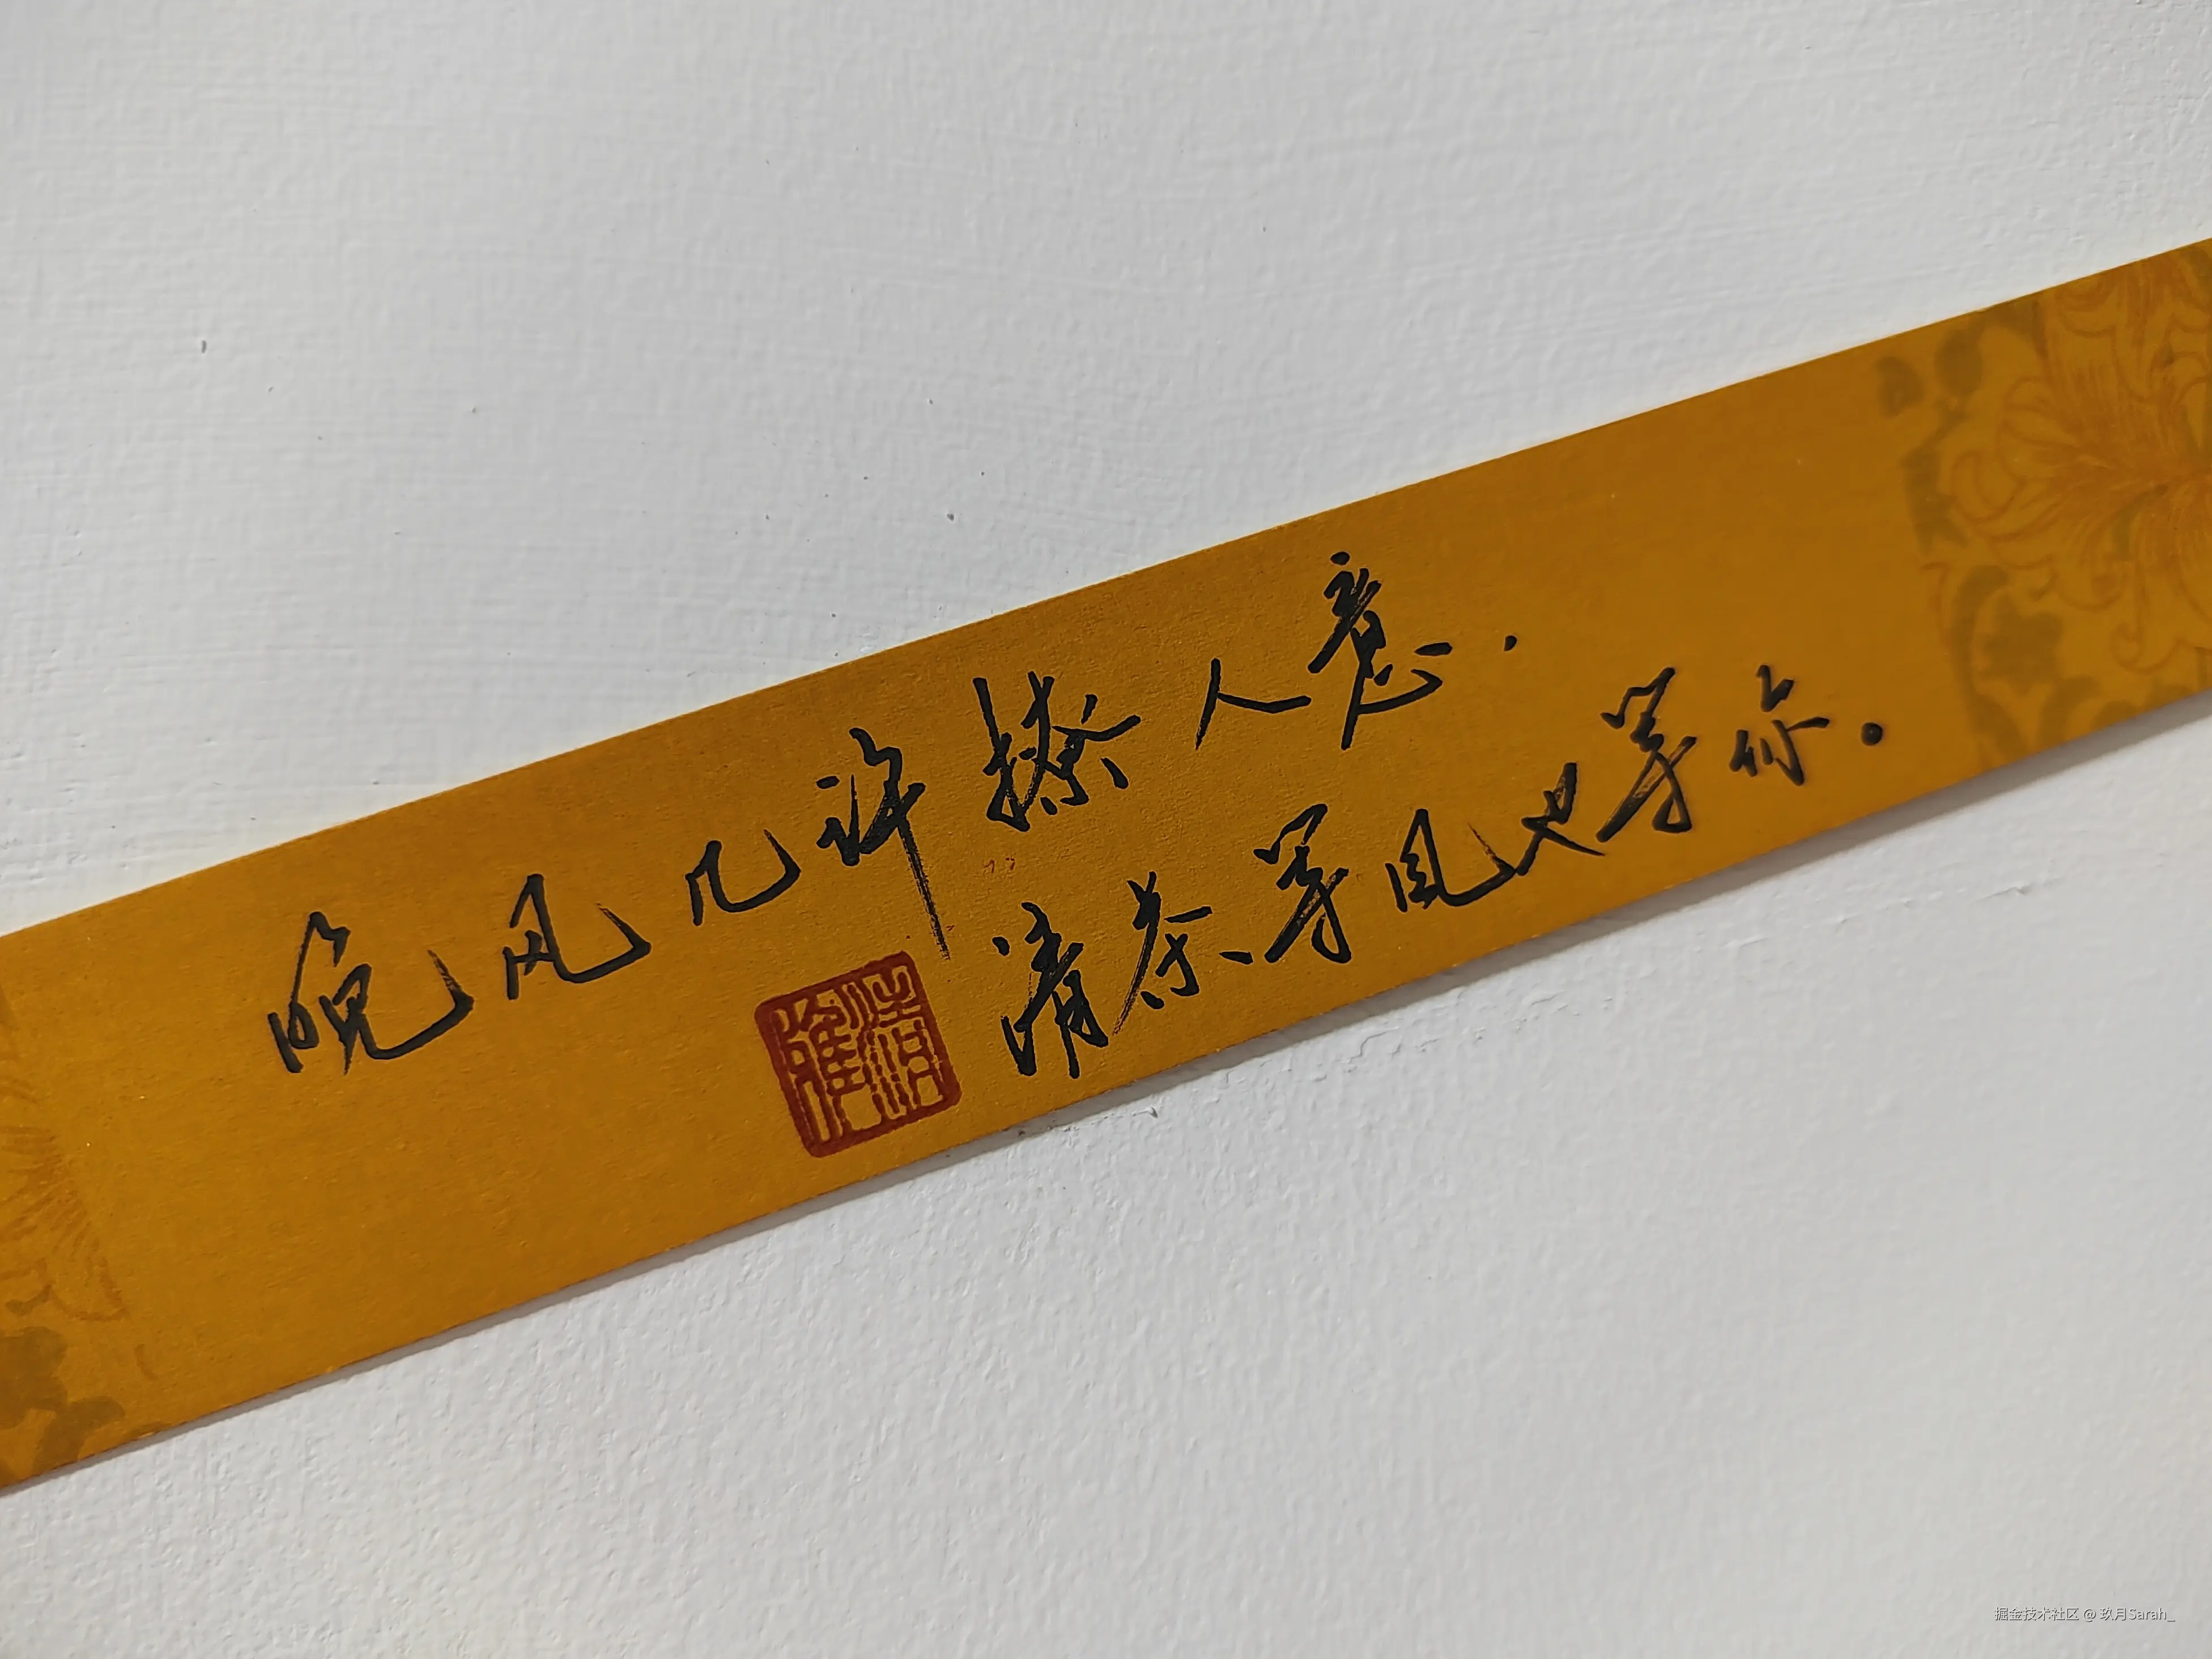 晚风几许撩人意.
清茶等风也等你。
清雅
掘金技术社区 @ 玖月Sarah_